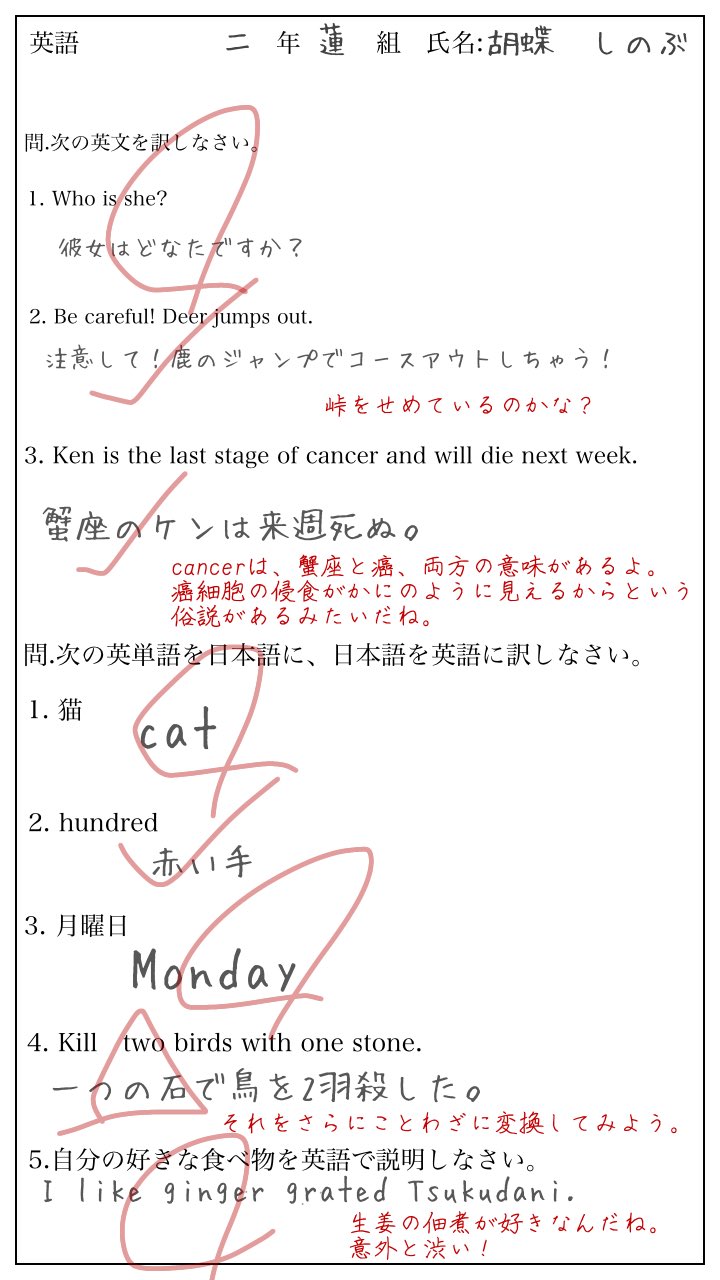 英語 二 年 蓮 組 氏名:胡蝶 しのぶ
問.次の英文を訳しなさい。
1. Who is she?
彼女はどなたですか?
2. Be careful! Deer jumps out.
注意して!鹿のジャンプでコースアウトしちゃう!
峠をせめているのかな?
3. Ken is the last stage of cancer and will die next week.
蟹座のケンは来週死ぬ。
cancerは、蟹座と癌、両方の意味があるよ。
癌細胞の侵食がかにのように見えるからという
俗説があるみたいだね。
問.次の英単語を日本語に、日本語を英語に訳しなさい。
1. 猫
cat
2. hundred
赤い手
3. 月曜日
Monday
4. Kill two birds with one stone.
一つの石で鳥を2羽殺した。
それをさらにことわざに変換してみよう。
5.自分の好きな食べ物を英語で説明しなさい。
I like ginger grated Tsukudani.
生姜の佃煮が好きなんだね。
意外と渋い!